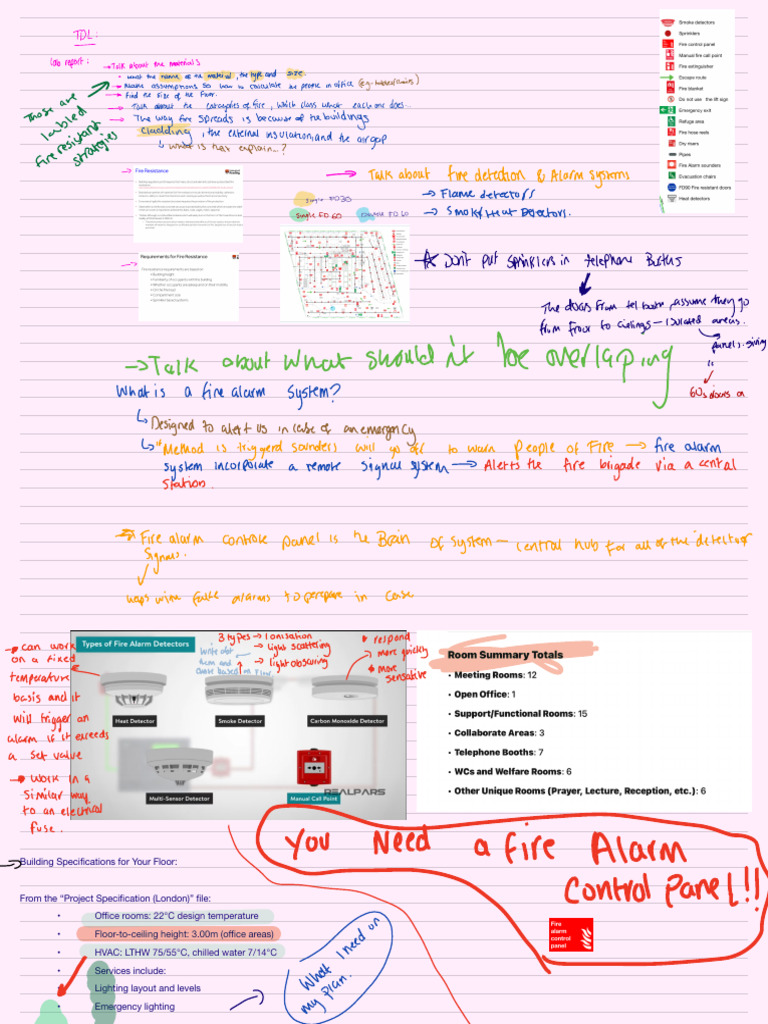 TDL:
Lab report:
→ Talk about the materials
• what the name of the material, the type and size.
→ Make assumptions so how to calculate the people in office
→ Find the size of the floor.
→ Talk about the categories of fire, which class what each one does..
→ The way fire spreads is because of the buildings
cladding, the external insulation, and the air gap
↳ what is that explain...?
Those are
labled
fire resistant
strategies
Smoke detectors
Sprinklers
Fire control panel
Manual fire call point
Fire extinguisher
Escape route
Fire blanket
Do not use the lift sign
Emergency exit
Refuge area
Fire hose reels
Dry risers
Pipes
Fire Alarm sounders
Evacuation chairs
FD90 Fire resistant doors
Heat detectors
Fire Resistance
→ Talk about fire detection & Alarm systems
→ Flame detectors
→ Smoke/Heat Detectors.
Single FD30
Single FD 60
Double FD 60
Requirements for Fire Resistance
Don't put sprinklers in telephone Booths
The doors from tel booths, assume they go
from floor to ceilings — isolated areas.
60s doors on
→ Talk about what shouldn't be overlaping
What is a fire alarm system?
↳ Designed to alert us in case of an emergency
↳ "Method is triggerd sounders will go off to warn people of Fire → fire alarm
system incorpolate a remote signal system → Alerts the fire brigade via a cental
station.
Fire alarm controle panel is the Brain of system — central hub for all of the detector
signals.
→ can work
on a fixed
temperature
basis and it
will trigger an
alarm if it exceeds
a set value
→ Work in a
similar way
to an electrical
fuse.
Types of Fire Alarm Detectors
3 types → Ionisation
→ light scattering
→ light obscuring
• respond
more quickly
• more
sensative
Heat Detector
Smoke Detector
Carbon Monoxide Detector
Multi-Sensor Detector
Manual Call Point
REALPARS
Room Summary Totals
• Meeting Rooms: 12
• Open Office: 1
• Support/Functional Rooms: 15
• Collaborate Areas: 3
• Telephone Booths: 7
• WCs and Welfare Rooms: 6
• Other Unique Rooms (Prayer, Lecture, Reception, etc.): 6
You Need a fire Alarm
control Panel!!
Fire
alarm
control
panel
Building Specifications for Your Floor:
From the “Project Specification (London)” file:
• Office rooms: 22°C design temperature
• Floor-to-ceiling height: 3.00m (office areas)
• HVAC: LTHW 75/55°C, chilled water 7/14°C
• Services include:
• Lighting layout and levels
• Emergency lighting
What I need on
my plan.